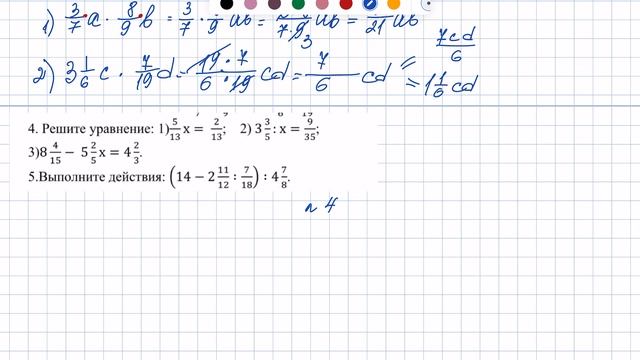 1) 3/7 a · 8/9 b = 3/7 · /9 ab = 7·9 3 ab = /21 ab
7cd/6
2) 3 1/6 c · 7/19 d = 19·7/6·19 cd = 7/6 cd = 1 1/6 cd
4. Решите уравнение: 1) 5/13 x = 2/13; 2) 3 3/5 : x = 9/35;
3) 8 4/15 − 5 2/5 x = 4 2/3.
5.Выполните действия: (14 − 2 11/12 : 7/18) : 4 7/8.
n 4